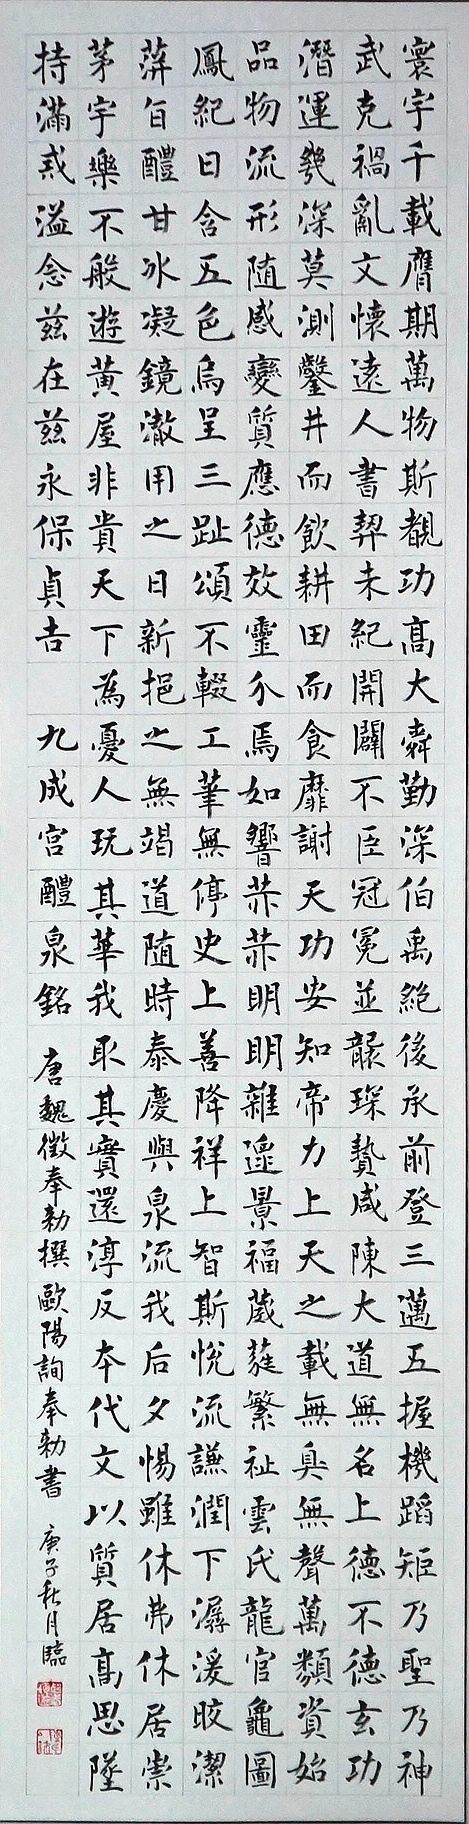 寰宇千載膺期萬物斯覩功高大舜勤深伯禹絕後承前登三邁五握機蹈矩乃聖乃神
武克禍亂文懷遠人書契未紀開闢不臣冠冕並襲琛贄咸陳大道無名上德不德玄功
潛運幾深莫測鑿井而飲耕田而食靡謝天功安知帝力上天之載無臭無聲萬類資始
品物流形隨感變質應德效靈介焉如響赫赫明明雜遝景福葳蕤繁祉雲氏龍官龜圖
鳳紀日含五色烏呈三趾頌不輟工筆無停史上善降祥上智斯悅流謙潤下潺湲皎潔
蓱旨醴甘冰凝鏡澈用之日新挹之無竭道隨時泰慶與泉流我后夕惕雖休弗休居崇
茅宇樂不般遊黃屋非貴天下為憂人玩其華我取其實還淳反本代文以質居高思墜
持滿戒溢念茲在茲永保貞吉 九成宮醴泉銘 唐魏徵奉勑撰 歐陽詢奉勑書 庚子秋月臨